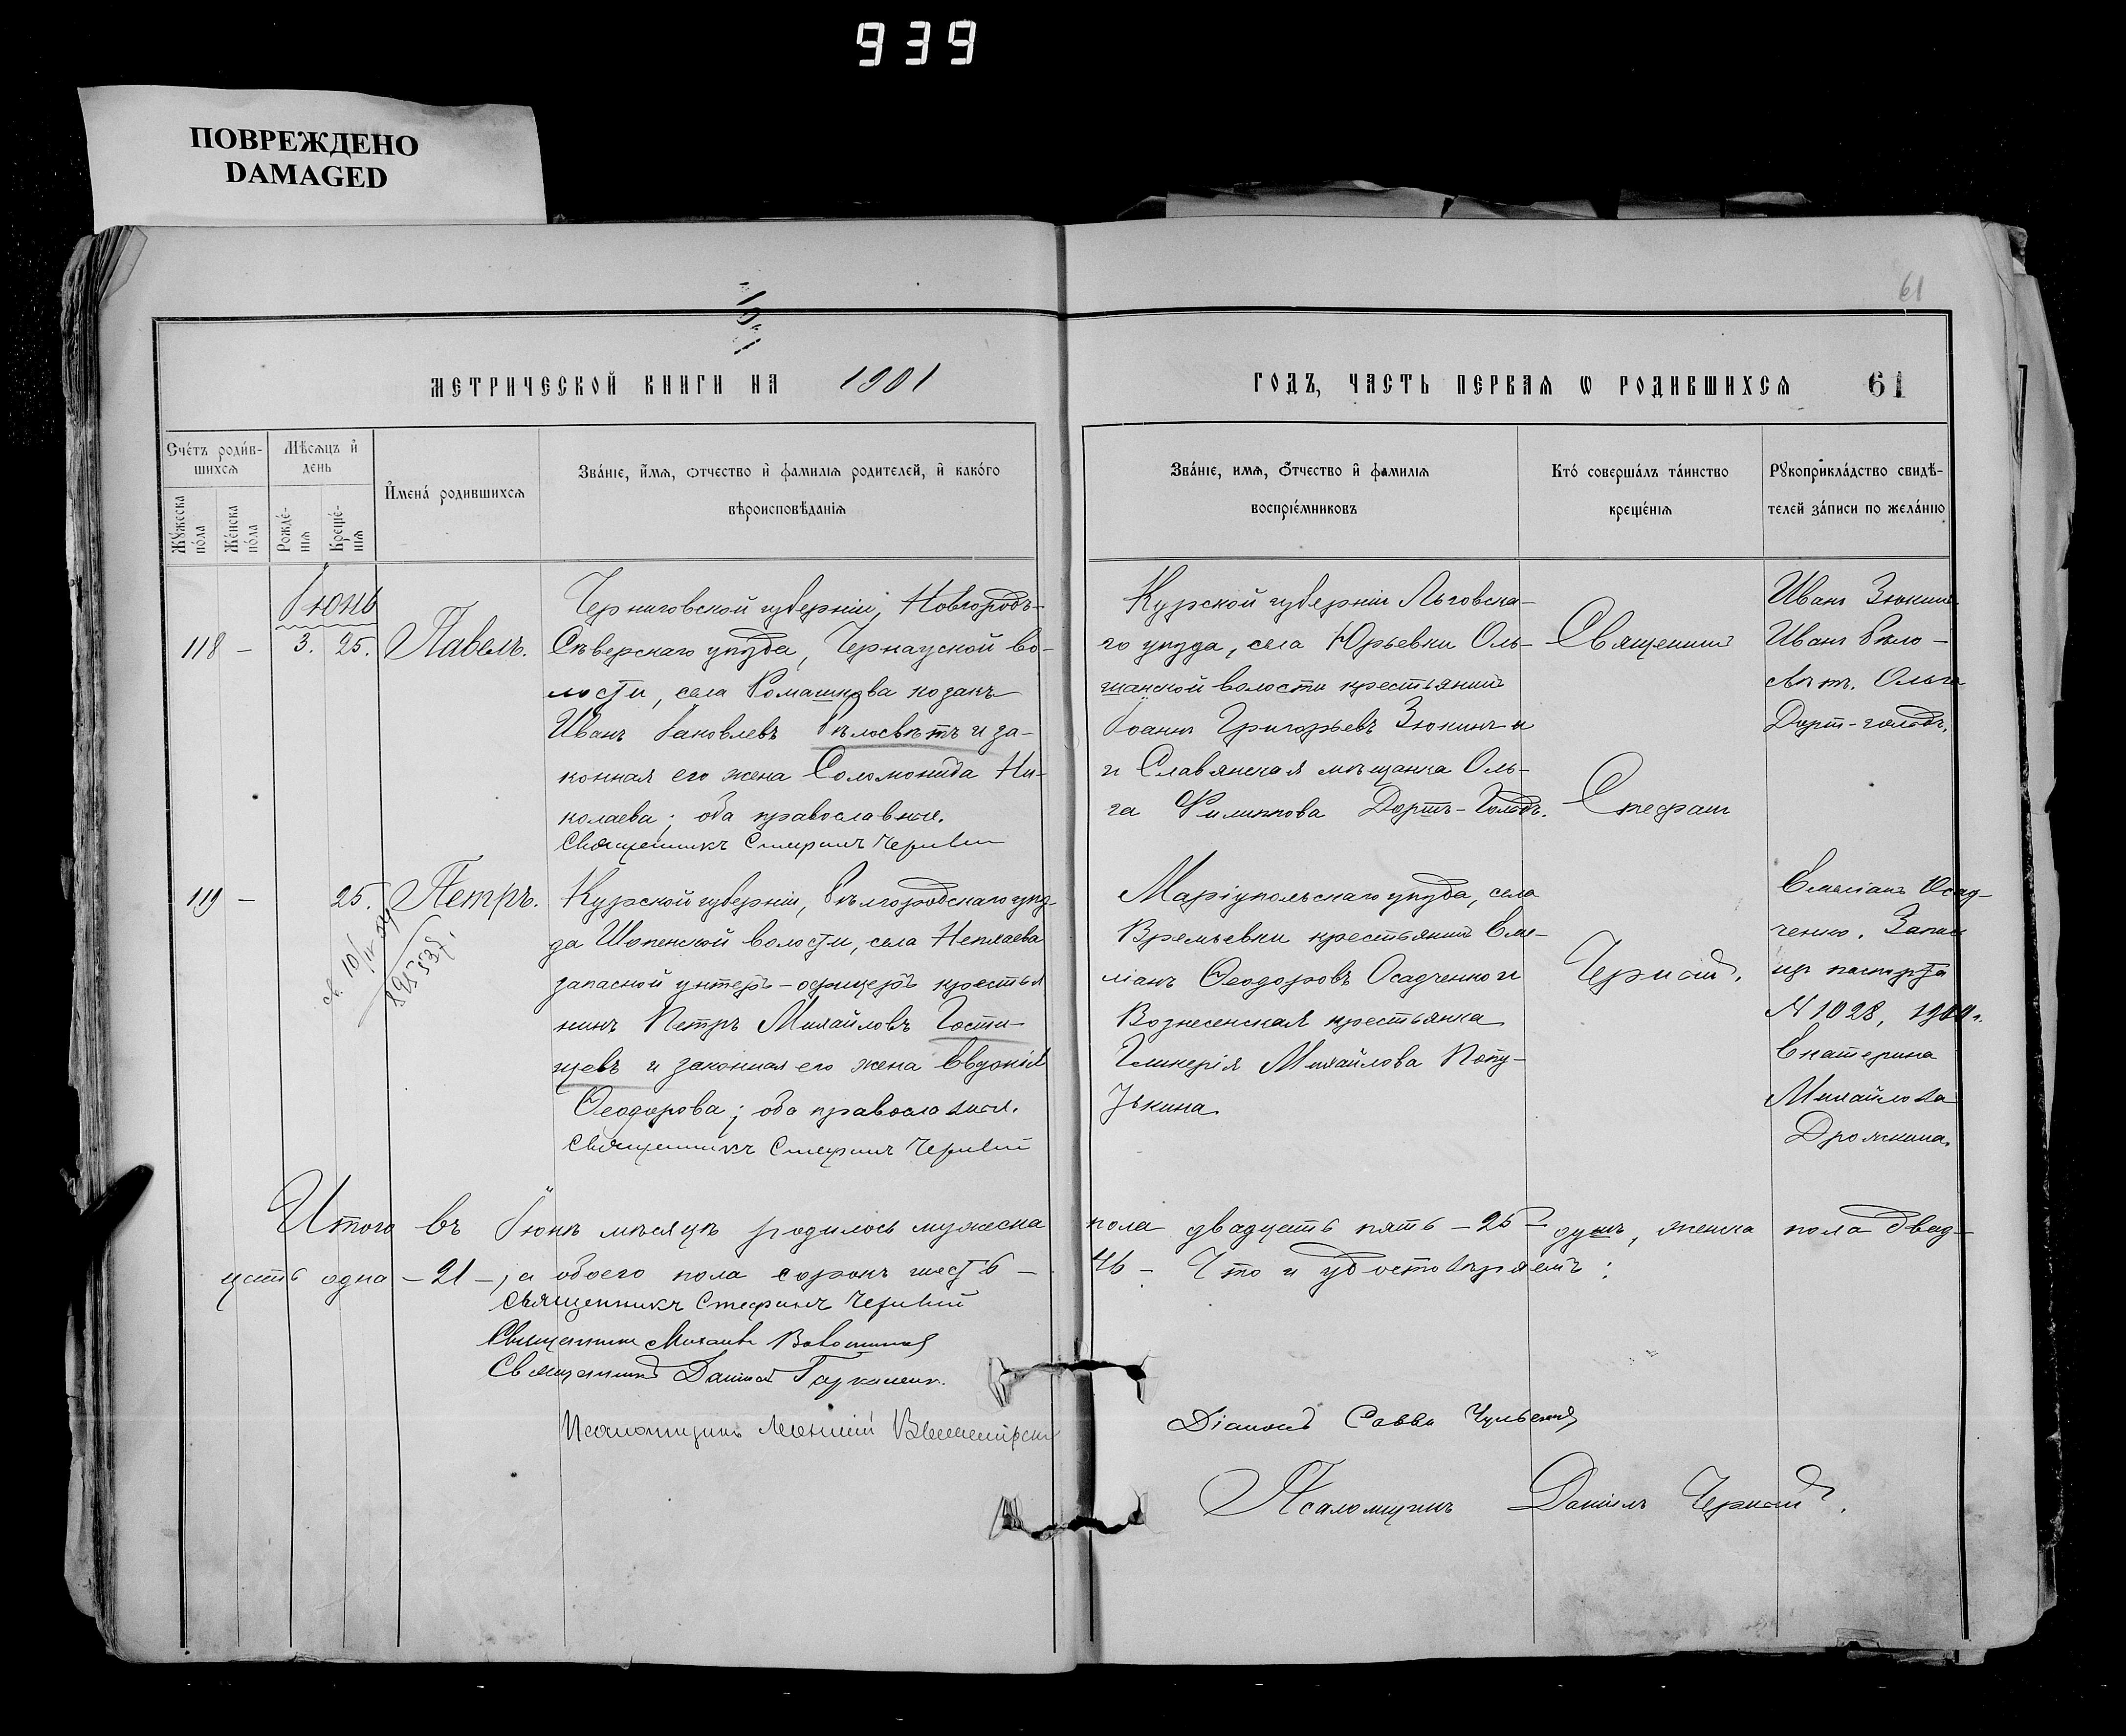 939
ПОВРЕЖДЕНО
DAMAGED
61
МЕТРИЧЕСКОЙ КНИГИ НА 1901
ГОДЪ, ЧАСТЬ ПЕРВАЯ Ѡ РОДИВШИХСЯ 61
Счетъ родив-
шихся
Мѣсяцъ и
день
Мужеска
пола
Женска
пола
Рожде-
нія
Креще-
нія
Имена родившихся
Званіе, имя, отчество и фамилія родителей, и какого
вѣроисповѣданія
Званіе, имя, отчество и фамилія
воспріемниковъ
Кто совершалъ таинство
крещенія
Рукоприкладство свидѣ-
телей записи по желанію
Іюнь
118 – 3. 25. Павелъ.
Черниговской губерніи, Новгородъ-
Сѣверскаго уѣзда, Чернацкой во-
лости, села Ромашкова козакъ
Иванъ Яковлевъ Бѣлосвѣтъ и за-
конная его жена Соломонида Ни-
колаева; оба православные.
Священникъ Стефанъ
Курской губерніи Льговска-
го уѣзда, села Юрьевки Оль-
шанской волости крестьянинъ
Іоаннъ Григорьевъ Зюкинъ и
и Славянская мѣщанка Оль-
га Филиппова Дортъ-Гольдъ.
Священникъ
Стефанъ
Иванъ Зюкинъ
Иванъ Бѣло-
свѣтъ. Ольга
Дортъ-гольдъ.
119 – 25. Петръ.
895537.
Курской губерніи, Бѣлгородскаго уѣз-
да Шопенской волости, села Непхаева
запасной унтеръ-офицеръ крестья
нинъ Петръ Михайловъ Гости-
щевъ и законная его жена Евдокія
Ѳеодорова; оба православные.
Священникъ Стефанъ
Маріупольскаго уѣзда, села
Времьевки крестьянинъ Еме-
ліанъ Ѳеодоровъ Осадченко и
Вознесенская крестьянка
Гликерія Михайлова
Емеліанъ Осад-
ченко.
№ 1028,
Екатерина
Михайлова
Итого въ Іюнѣ мѣсяцѣ родилось мужеска
пола двадцать пять – 25 – душъ, женска пола двад-
цать одна – 21 –, а обоего пола сорокъ шесть –
46 – Что и удостовѣряемъ:
Священникъ Стефанъ
Священникъ Михаилъ
Священникъ Даніилъ
Діаконъ Савва
Псаломщикъ
Псаломщикъ Даніилъ